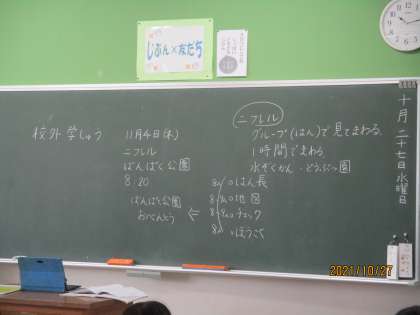 じぶん×友だち
校外学しゅう
11月4日(木)
ニフレル
ばんぱく公園
8:20
ばんぱく公園
おべんとう
ニフレル
グループ(はん)で見てまわる。
1時間でまわる
水ぞくかん・どうぶつ園
はん長
地図
チェック
ほうこく
十月二十七日水曜日
2021/10/27